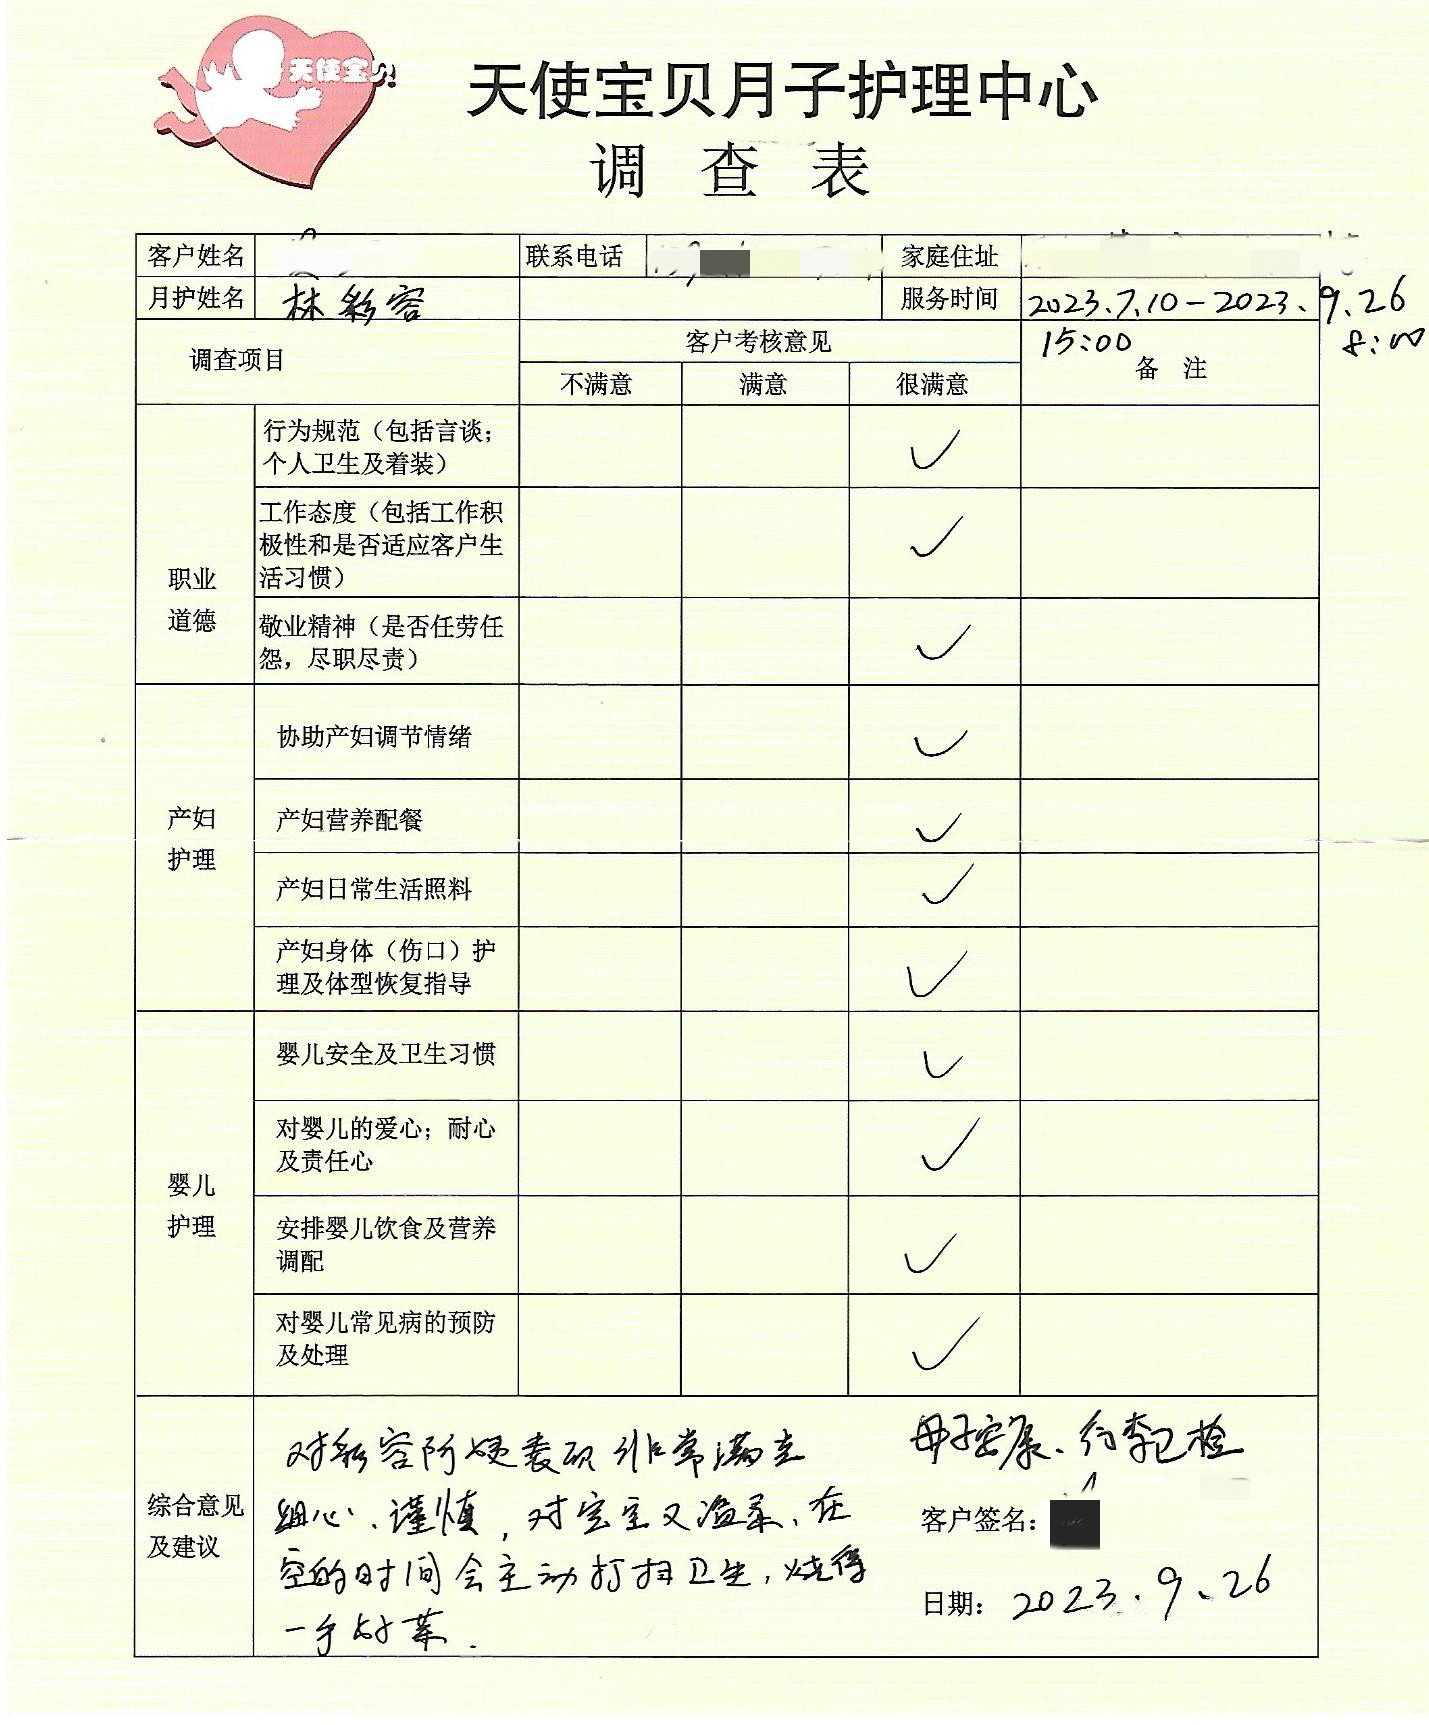 天使宝贝
天使宝贝月子护理中心
调 查 表
客户姓名 联系电话 家庭住址
月护姓名 林彩容 服务时间 2023.7.10-2023.9.26
15:00 8:00
调查项目 客户考核意见 备 注
不满意 满意 很满意
职业
道德
行为规范（包括言谈；
个人卫生及着装）
工作态度（包括工作积
极性和是否适应客户生
活习惯）
敬业精神（是否任劳任
怨，尽职尽责）
产妇
护理
协助产妇调节情绪
产妇营养配餐
产妇日常生活照料
产妇身体（伤口）护
理及体型恢复指导
婴儿
护理
婴儿安全及卫生习惯
对婴儿的爱心；耐心
及责任心
安排婴儿饮食及营养
调配
对婴儿常见病的预防
及处理
综合意见
及建议
对彩容阿姨表现非常满意
细心、谨慎，对宝宝又温柔、在
空的时间会主动打扫卫生，烧得
一手好菜.
母子安康、行李已检
客户签名：
日期： 2023.9.26